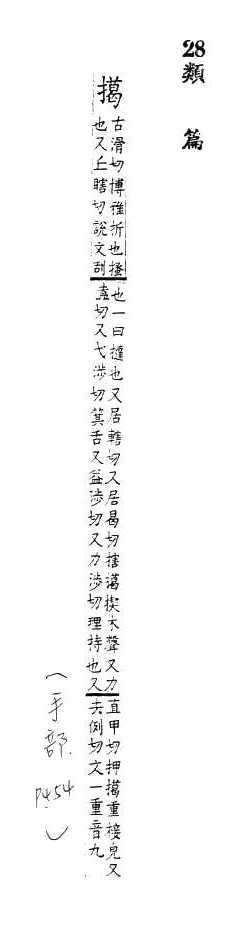 28
類篇
擖
古滑切博雅折也搔
也又丘瞎切說文刮
也一曰撻也又居轄切又居曷切擖楔木聲又力
盍切又弋涉切箕舌又益涉切又力涉切理持也又
直甲切押擖重接皃又
去例切文一重音九
(手部.
P454
)